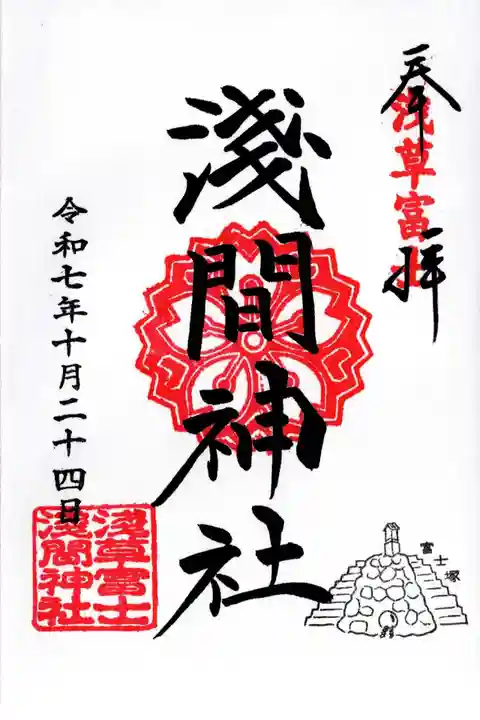 奉拝
浅草富士
淺間神社
令和七年十月二十四日
淺草富士
淺間神社
富士塚